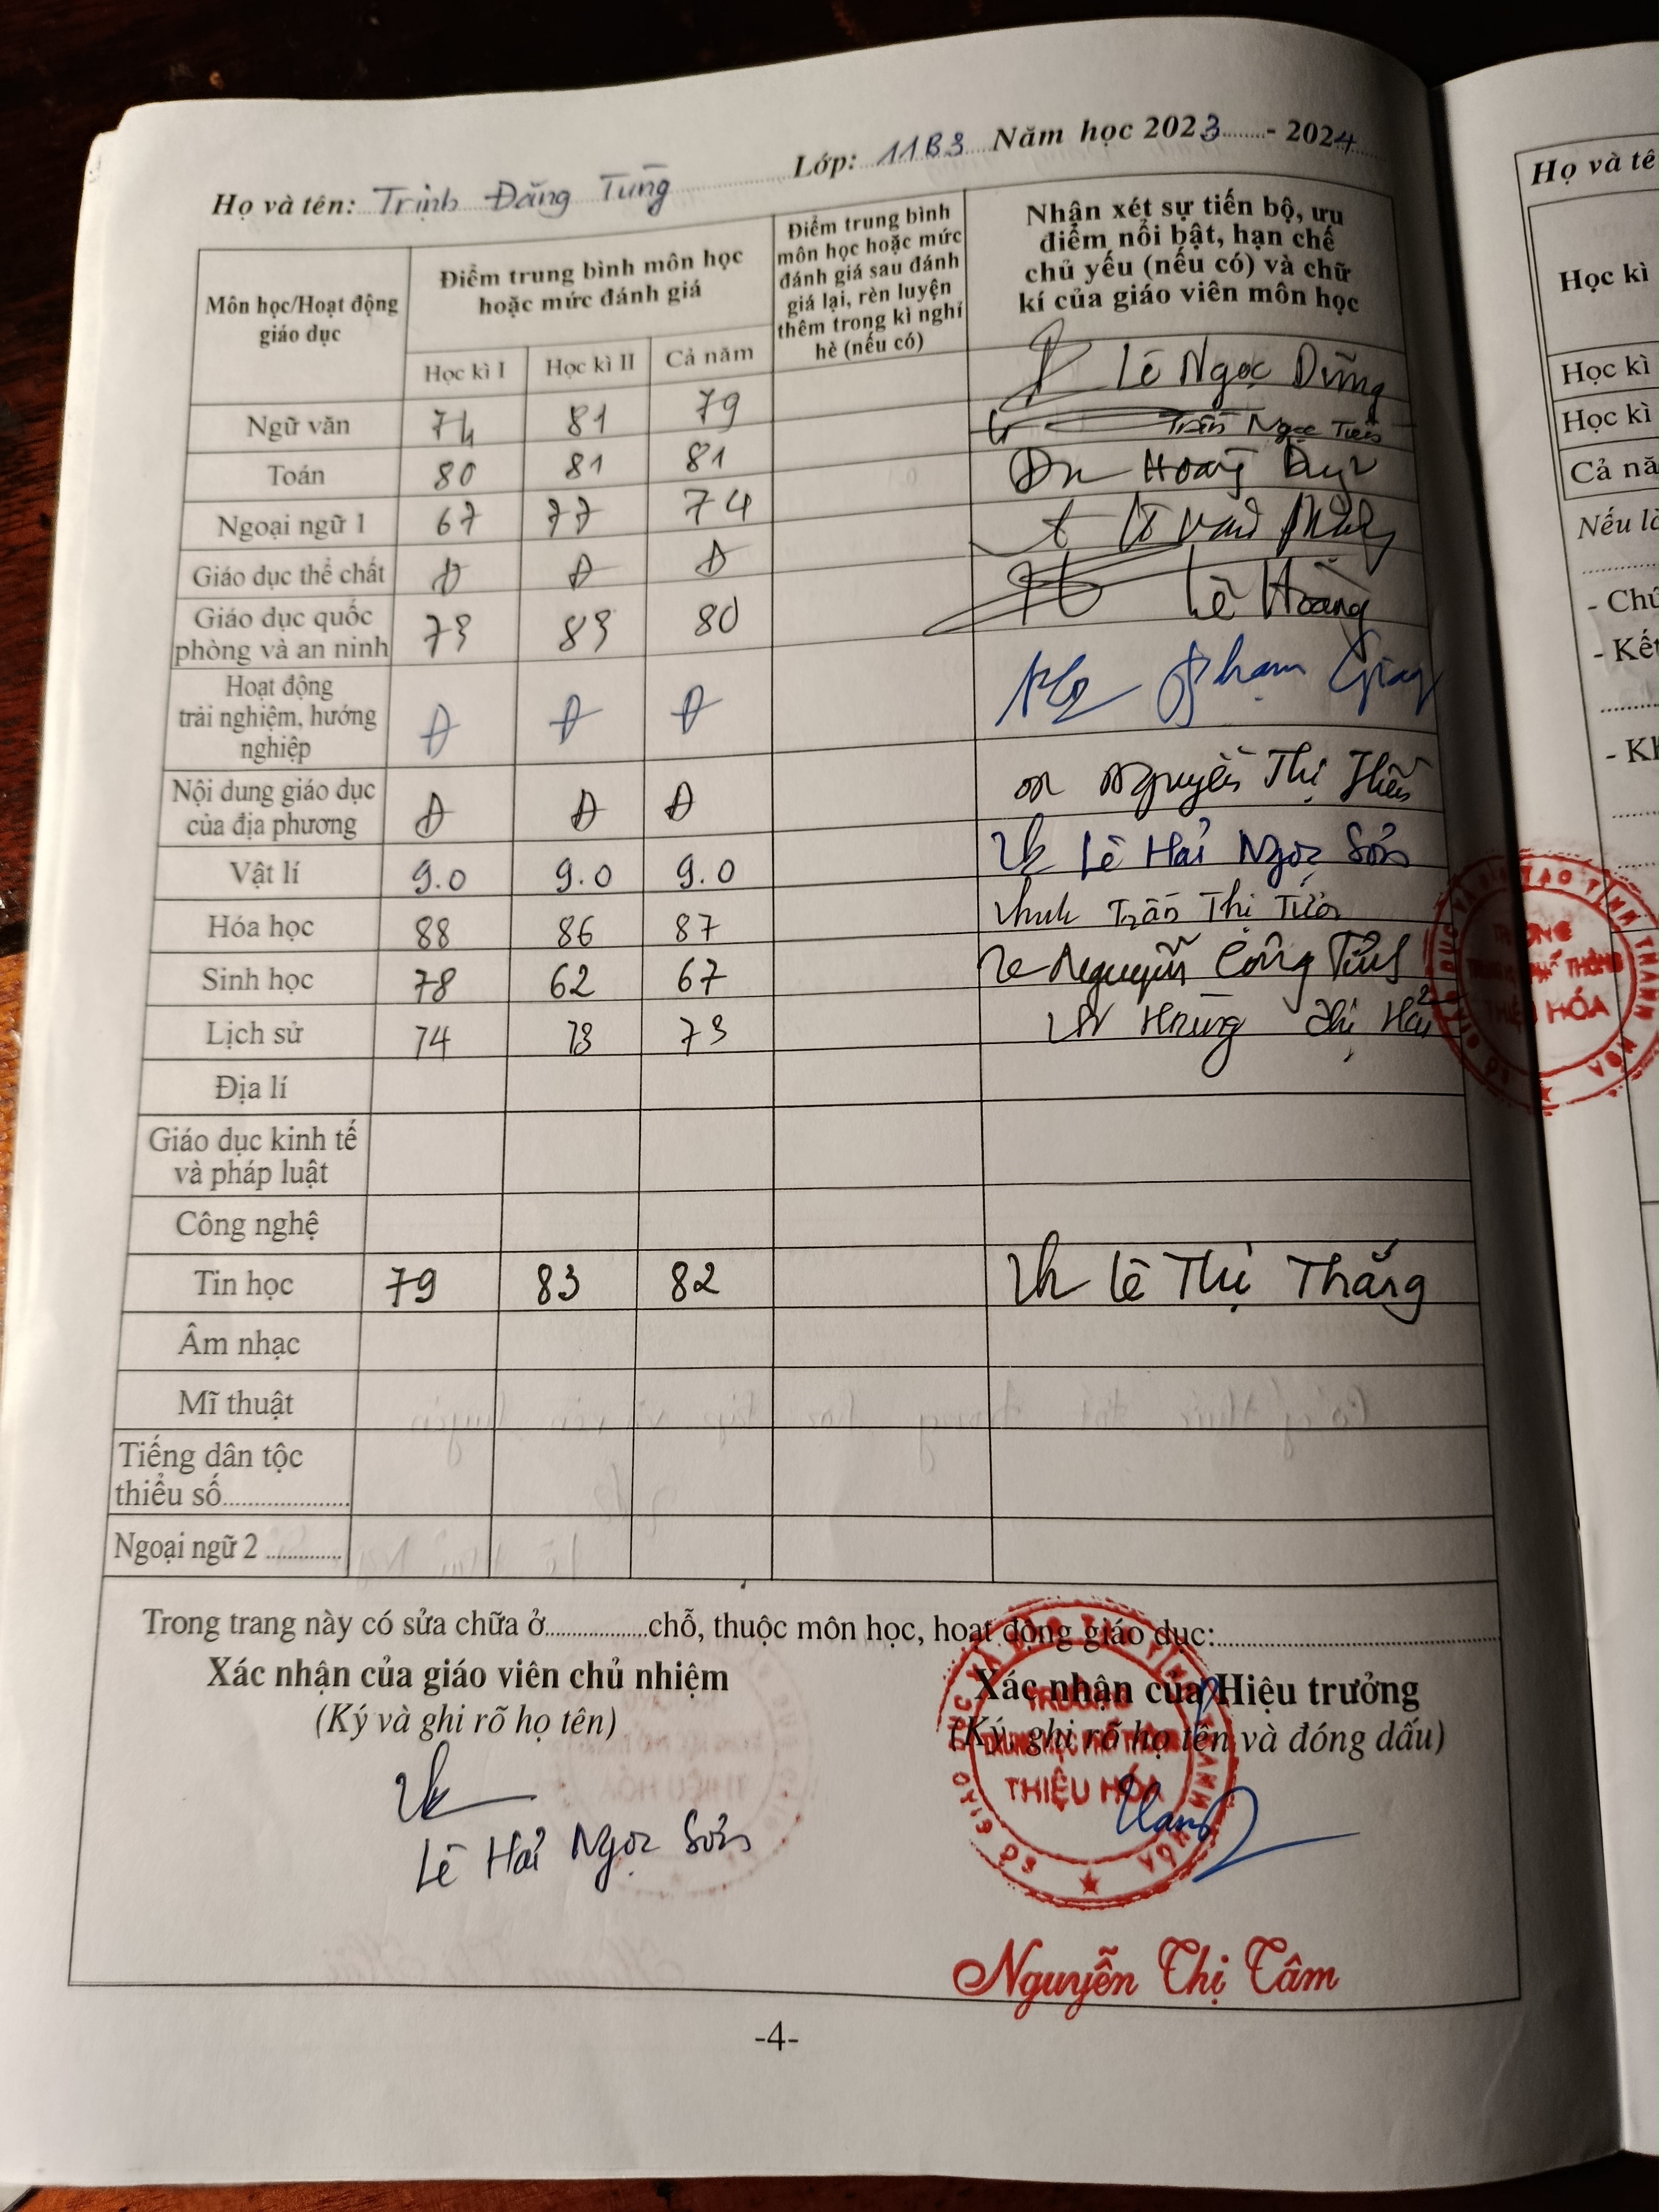 Họ và tên: Trịnh Đăng Tùng Lớp: 11B3 Năm học 2023 - 2024
Môn học/Hoạt động giáo dục
Điểm trung bình môn học hoặc mức đánh giá
Điểm trung bình môn học hoặc mức đánh giá sau đánh giá lại, rèn luyện thêm trong kì nghỉ hè (nếu có)
Nhận xét sự tiến bộ, ưu điểm nổi bật, hạn chế chủ yếu (nếu có) và chữ kí của giáo viên môn học
Học kì I Học kì II Cả năm
Ngữ văn 74 81 79 Lê Ngọc Dũng
Toán 80 81 81 Trần Ngọc
Ngoại ngữ 1 67 77 74 Hoàng
Giáo dục thể chất Đ Đ Đ
Giáo dục quốc phòng và an ninh 73 83 80 Lê Hoàng
Hoạt động trải nghiệm, hướng nghiệp Đ Đ Đ Phạm
Nội dung giáo dục của địa phương Đ Đ Đ Nguyễn Thị
Vật lí 9.0 9.0 9.0 Lê Hải Ngọc Sơn
Hóa học 88 86 87 Trần Thị
Sinh học 78 62 67 Nguyễn Công
Lịch sử 74 73 73 Thị Hải
Địa lí
Giáo dục kinh tế và pháp luật
Công nghệ
Tin học 79 83 82 Lê Thị Thắng
Âm nhạc
Mĩ thuật
Tiếng dân tộc thiểu số
Ngoại ngữ 2
Trong trang này có sửa chữa ở chỗ, thuộc môn học, hoạt động giáo dục:
Xác nhận của giáo viên chủ nhiệm
(Ký và ghi rõ họ tên)
Lê Hải Ngọc Sơn
Xác nhận của Hiệu trưởng
(Ký, ghi rõ họ tên và đóng dấu)
TRƯỜNG
TRUNG HỌC PHỔ THÔNG
THIỆU HÓA
Nguyễn Thị Tâm
-4-
Họ và tê
Học kì
Học kì
Học kì
Cả nă
Nếu là
- Chứ
- Kết
- Kh
TRƯỜNG
TRUNG HỌC PHỔ THÔNG
THIỆU HÓA